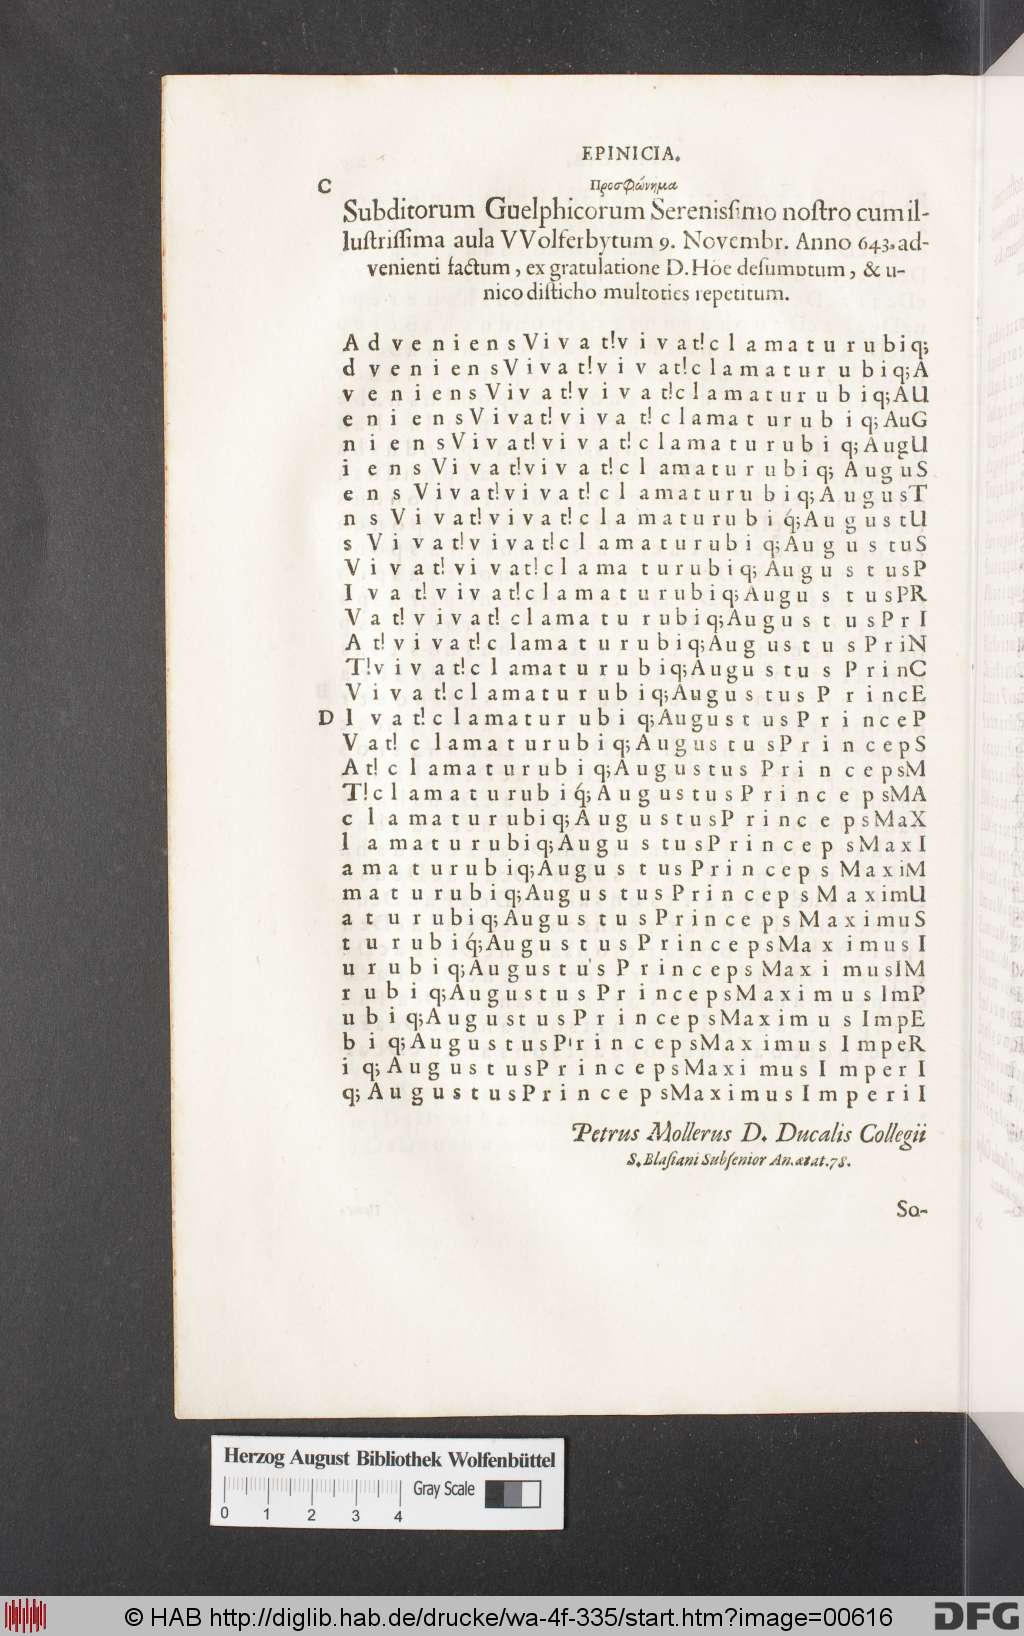 EPINICIA.
C
Προσφώνημα
Subditorum Guelphicorum Serenissimo nostro cum il-
lustrissima aula VVolferbytum 9. Novembr. Anno 643. ad-
venienti factum, ex gratulatione D. Höe desumptum, & u-
nico disticho multoties repetitum.
A d v e n i e n s V i v a t! v i v a t! c l a m a t u r u b i q;
d v e n i e n s V i v a t! v i v a t! c l a m a t u r u b i q; A
v e n i e n s V i v a t! v i v a t! c l a m a t u r u b i q; A U
e n i e n s V i v a t! v i v a t! c l a m a t u r u b i q; A u G
n i e n s V i v a t! v i v a t! c l a m a t u r u b i q; A u g U
i e n s V i v a t! v i v a t! c l a m a t u r u b i q; A u g u S
e n s V i v a t! v i v a t! c l a m a t u r u b i q; A u g u s T
n s V i v a t! v i v a t! c l a m a t u r u b i q́; A u g u s t U
s V i v a t! v i v a t! c l a m a t u r u b i q; A u g u s t u S
V i v a t! v i v a t! c l a m a t u r u b i q; A u g u s t u s P
I v a t! v i v a t! c l a m a t u r u b i q; A u g u s t u s P R
V a t! v i v a t! c l a m a t u r u b i q; A u g u s t u s P r I
A t! v i v a t! c l a m a t u r u b i q; A u g u s t u s P r i N
T! v i v a t! c l a m a t u r u b i q; A u g u s t u s P r i n C
V i v a t! c l a m a t u r u b i q; A u g u s t u s P r i n c E
D I v a t! c l a m a t u r u b i q; A u g u s t u s P r i n c e P
V a t! c l a m a t u r u b i q; A u g u s t u s P r i n c e p S
A t! c l a m a t u r u b i q; A u g u s t u s P r i n c e p s M
T! c l a m a t u r u b i q́; A u g u s t u s P r i n c e p s M A
c l a m a t u r u b i q; A u g u s t u s P r i n c e p s M a X
l a m a t u r u b i q; A u g u s t u s P r i n c e p s M a x I
a m a t u r u b i q; A u g u s t u s P r i n c e p s M a x i M
m a t u r u b i q; A u g u s t u s P r i n c e p s M a x i m U
a t u r u b i q; A u g u s t u s P r i n c e p s M a x i m u S
t u r u b i q́; A u g u s t u s P r i n c e p s M a x i m u s I
u r u b i q; A u g u s t u s P r i n c e p s M a x i m u s I M
r u b i q; A u g u s t u s P r i n c e p s M a x i m u s I m P
u b i q; A u g u s t u s P r i n c e p s M a x i m u s I m p E
b i q; A u g u s t u s P r i n c e p s M a x i m u s I m p e R
i q; A u g u s t u s P r i n c e p s M a x i m u s I m p e r I
q; A u g u s t u s P r i n c e p s M a x i m u s I m p e r i I
Petrus Mollerus D. Ducalis Collegii
S. Blasiani Subsenior An. ætat. 78.
So-
Herzog August Bibliothek Wolfenbüttel
Gray Scale
0 1 2 3 4
© HAB http://diglib.hab.de/drucke/wa-4f-335/start.htm?image=00616
DFG